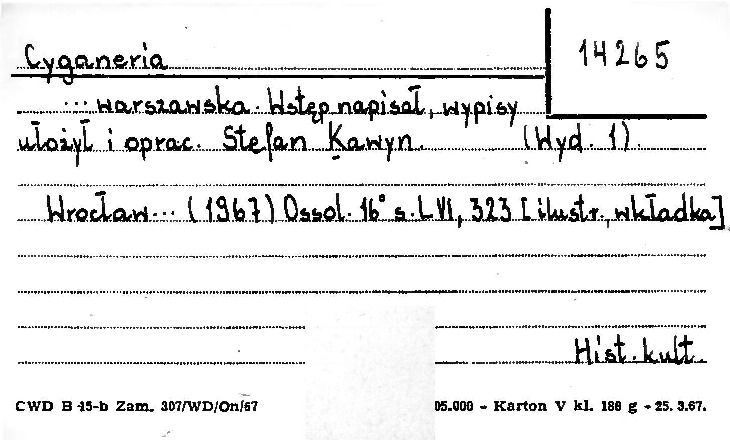 Cyganeria
14265
... warszawska. Wstęp napisał, wypisy
ułożył i oprac. Stefan Kawyn. (Wyd. 1).
Wrocław... (1967) Ossol. 16° s. LVI, 323 [ilustr., wkładka]
Hist. kult.
CWD B 15-b Zam. 307/WD/On/67 05.000 - Karton V kl. 188 g - 25. 3.67.